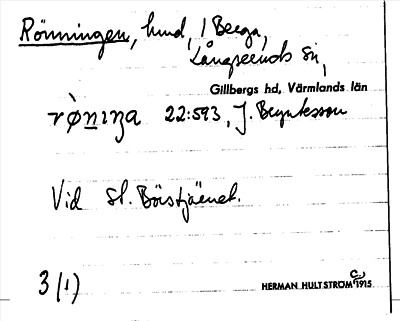 Rönningen, hmd, 1 Berga,
Långseruds sn,
Gillbergs hd, Värmlands län
22:593, J. Bryntesson
Vid St. Börstjänet.
3 (1)
HERMAN HULTSTRÖM C:a 1915